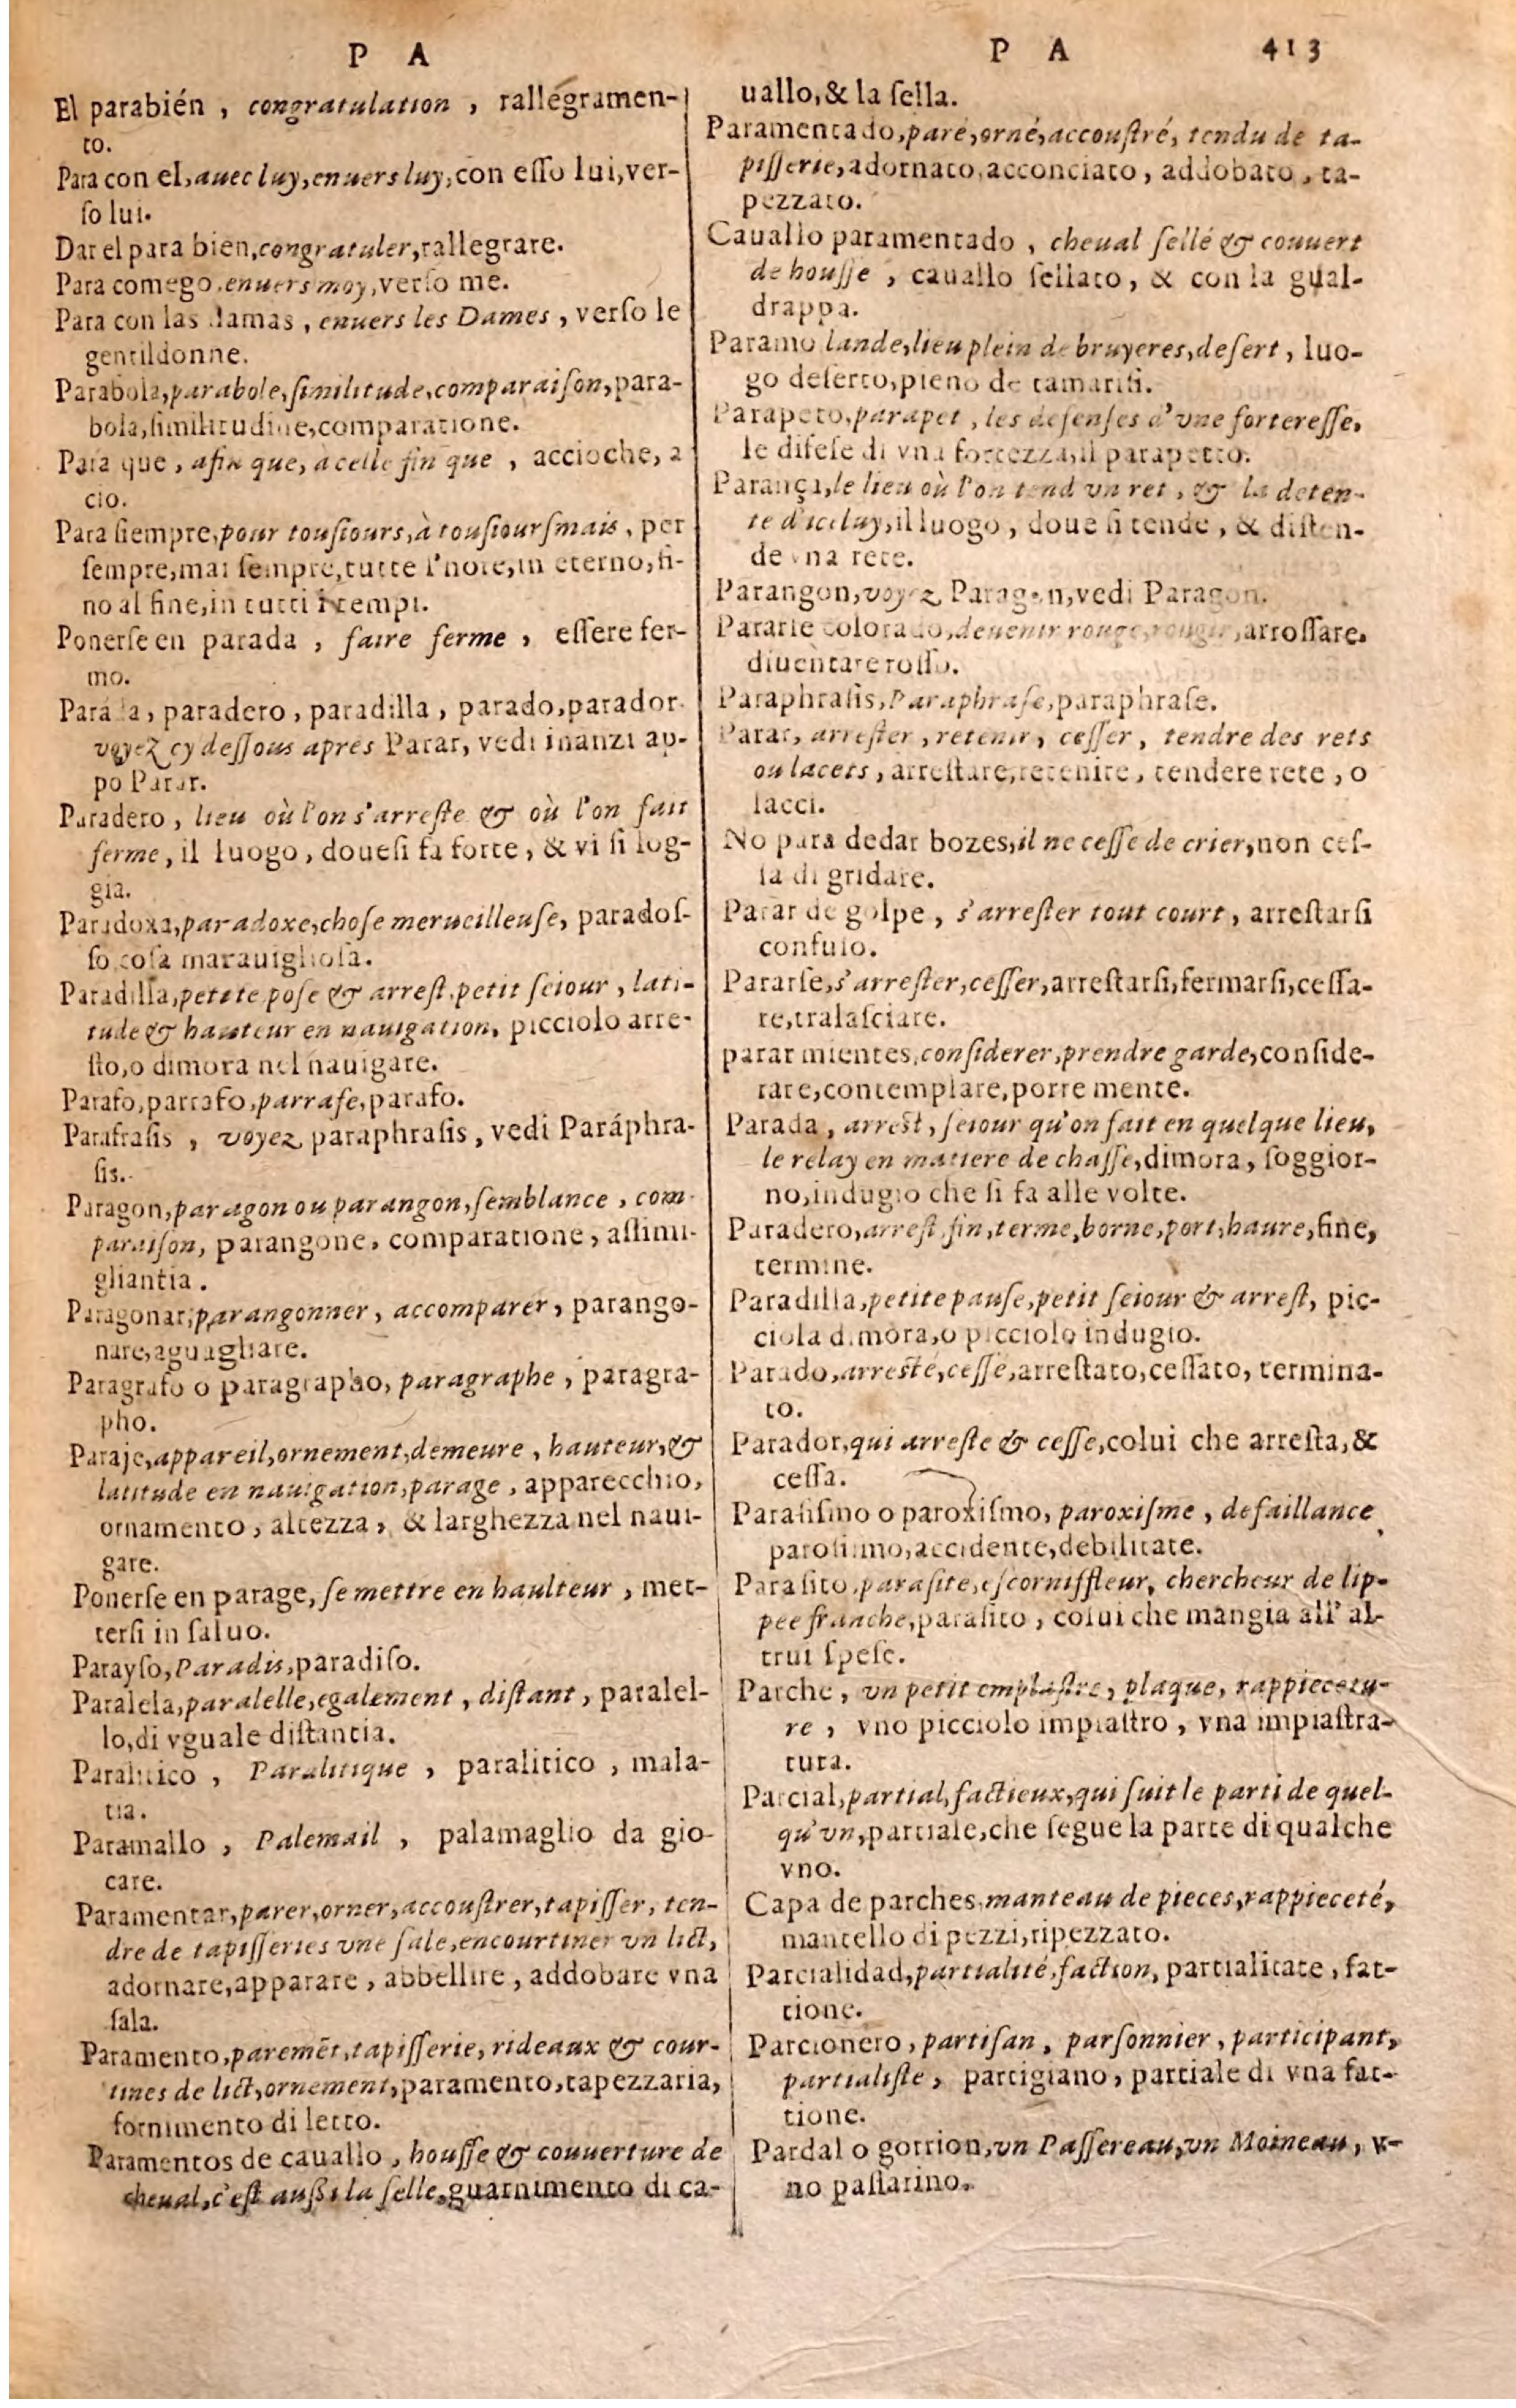 P A
El parabién , congratulation , rallegramen-
to.
Para con el, auec luy, enuers luy, con eſſo lui, ver-
ſo lui.
Dar el para bien, congratuler, rallegrare.
Para comego, enuers moy, verſo me.
Para con las damas , enuers les Dames , verſo le
gentildonne.
Parabola, parabole, ſimilitude, comparaiſon, para-
bola, ſimilitudine, comparatione.
Para que , afin que, a celle fin que , accioche, a
cio.
Para ſiempre, pour touſiours, à touſiourſmais , per
ſempre, mai ſempre, tutte l'hore, in eterno, fi-
no al fine, in tutti i tempi.
Ponerſe en parada , faire ferme , eſſere fer-
mo.
Parada , paradero , paradilla , parado, parador.
voyez cy deſſous apres Parar, vedi inanzi ap-
po Parar.
Paradero , lieu où l'on s'arreſte & où l'on fait
ferme, il luogo , doueſi fa forte , & vi ſi log-
gia.
Paradoxa, paradoxe, choſe merueilleuſe, paradoſ-
ſo coſa marauigliofa.
Paradilla, petite poſe & arreſt, petit ſeiour , lati-
tude & hauteur en nauigation, picciolo arre-
ſto, o dimora nel nauigare.
Parafo, parrafo, parrafe, parafo.
Parafraſis , voyez paraphraſis , vedi Paráphra-
ſis.
Paragon, paragon ou parangon, ſemblance , com-
paraiſon, parangone, comparatione , aſſimi-
gliantia .
Paragonar, parangonner, accomparer , parango-
nare, aguagliare.
Paragrafo o paragrapho, paragraphe , paragra-
pho.
Paraje, appareil, ornement, demeure , hauteur, &
latitude en nauigation, parage , apparecchio,
ornamento , altezza , & larghezza nel naui-
gare.
Ponerſe en parage, ſe mettre en haulteur , met-
terſi in ſaluo.
Parayſo, Paradis, paradiſo.
Paralela, paralelle, egalement , diſtant , paralel-
lo, di vguale diſtantia.
Paralitico , Paralitique , paralitico , mala-
tia.
Paramallo , Palemail , palamaglio da gio-
care.
Paramentar, parer, orner, accouſtrer, tapiſſer, ten-
dre de tapiſſeries vne ſale, encourtiner vn lict,
adornare, apparare , abbellire , addobare vna
ſala.
Paramento, paremēt, tapiſſerie, rideaux & cour-
tines de lict, ornement, paramento, tapezzaria,
fornimento di letto.
Paramentos de cauallo , houſſe & couuerture de
cheual, c'eſt auſsi la ſelle, guarnimento di ca-
P A 413
uallo, & la ſella.
Paramentado, paré, orné, accouſtré, tendu de ta-
piſſerie, adornato, acconciato , addobato , ta-
pezzato.
Cauallo paramentado , cheual ſellé & couuert
de houſſe , cauallo ſellato , & con la gual-
drappa.
Paramo lande, lieu plein de bruyeres, deſert , luo-
go deſerto, pieno de tamariſi.
Parapeto, parapet , les defenſes d'vne fortereſſe,
le difeſe di vna fortezza, il parapetto.
Parança, le lieu où l'on tend vn ret , & la deten-
te d'iceluy, il luogo , doue ſi tende , & diſten-
de vna rete.
Parangon, voyez Paragon, vedi Paragon.
Pararſe colorado, deuenir rouge, rougir, arroſſare.
diuentare roſſo.
Paraphraſis, Paraphraſe, paraphraſe.
Parar, arreſter , retenir, ceſſer , tendre des rets
ou lacets , arreſtare, retenire , tendere rete , o
lacci.
No para dedar bozes, il ne ceſſe de crier, non ceſ-
ſa di gridare.
Parar de golpe , s'arreſter tout court , arreſtarſi
confuſo.
Pararſe, s'arreſter, ceſſer, arreſtarſi, fermarſi, ceſſa-
re, tralaſciare.
parar mientes, conſiderer, prendre garde, conſide-
rare, contemplare, porre mente.
Parada , arreſt, ſeiour qu'on fait en quelque lieu,
le relay en matiere de chaſſe, dimora , ſoggior-
no, indugio che ſi fa alle volte.
Paradero, arreſt, fin, terme, borne, port, haure, fine,
termine.
Paradilla, petite pauſe, petit ſeiour & arreſt, pic-
ciola dimora, o picciolo indugio.
Parado, arreſté, ceſſé, arreſtato, ceſſato, termina-
to.
Parador, qui arreſte & ceſſe, colui che arreſta, &
ceſſa.
Paraſiſmo o paroxiſmo, paroxiſme , defaillance
paroſiſmo, accidente, debilitate.
Paraſito, paraſite, eſcorniffleur, chercheur de lip-
pee franche, paraſito , colui che mangia all' al-
trui ſpeſe.
Parche , vn petit emplaſtre, plaque, rappiecetu-
re , vno picciolo impiaſtro , vna impiaſtra-
tura.
Parcial, partial, factieux, qui ſuit le parti de quel-
qu'vn, partiale, che ſegue la parte di qualche
vno.
Capa de parches, manteau de pieces, rappieceté,
mantello di pezzi, ripezzato.
Parcialidad, partialité, faction, partialitate , fat-
tione.
Parcionero , partiſan , parſonnier , participant,
partialiſte , partigiano , partiale di vna fat-
tione.
Pardal o gorrion, vn Paſſereau, vn Moineau, v-
no paſſarino.